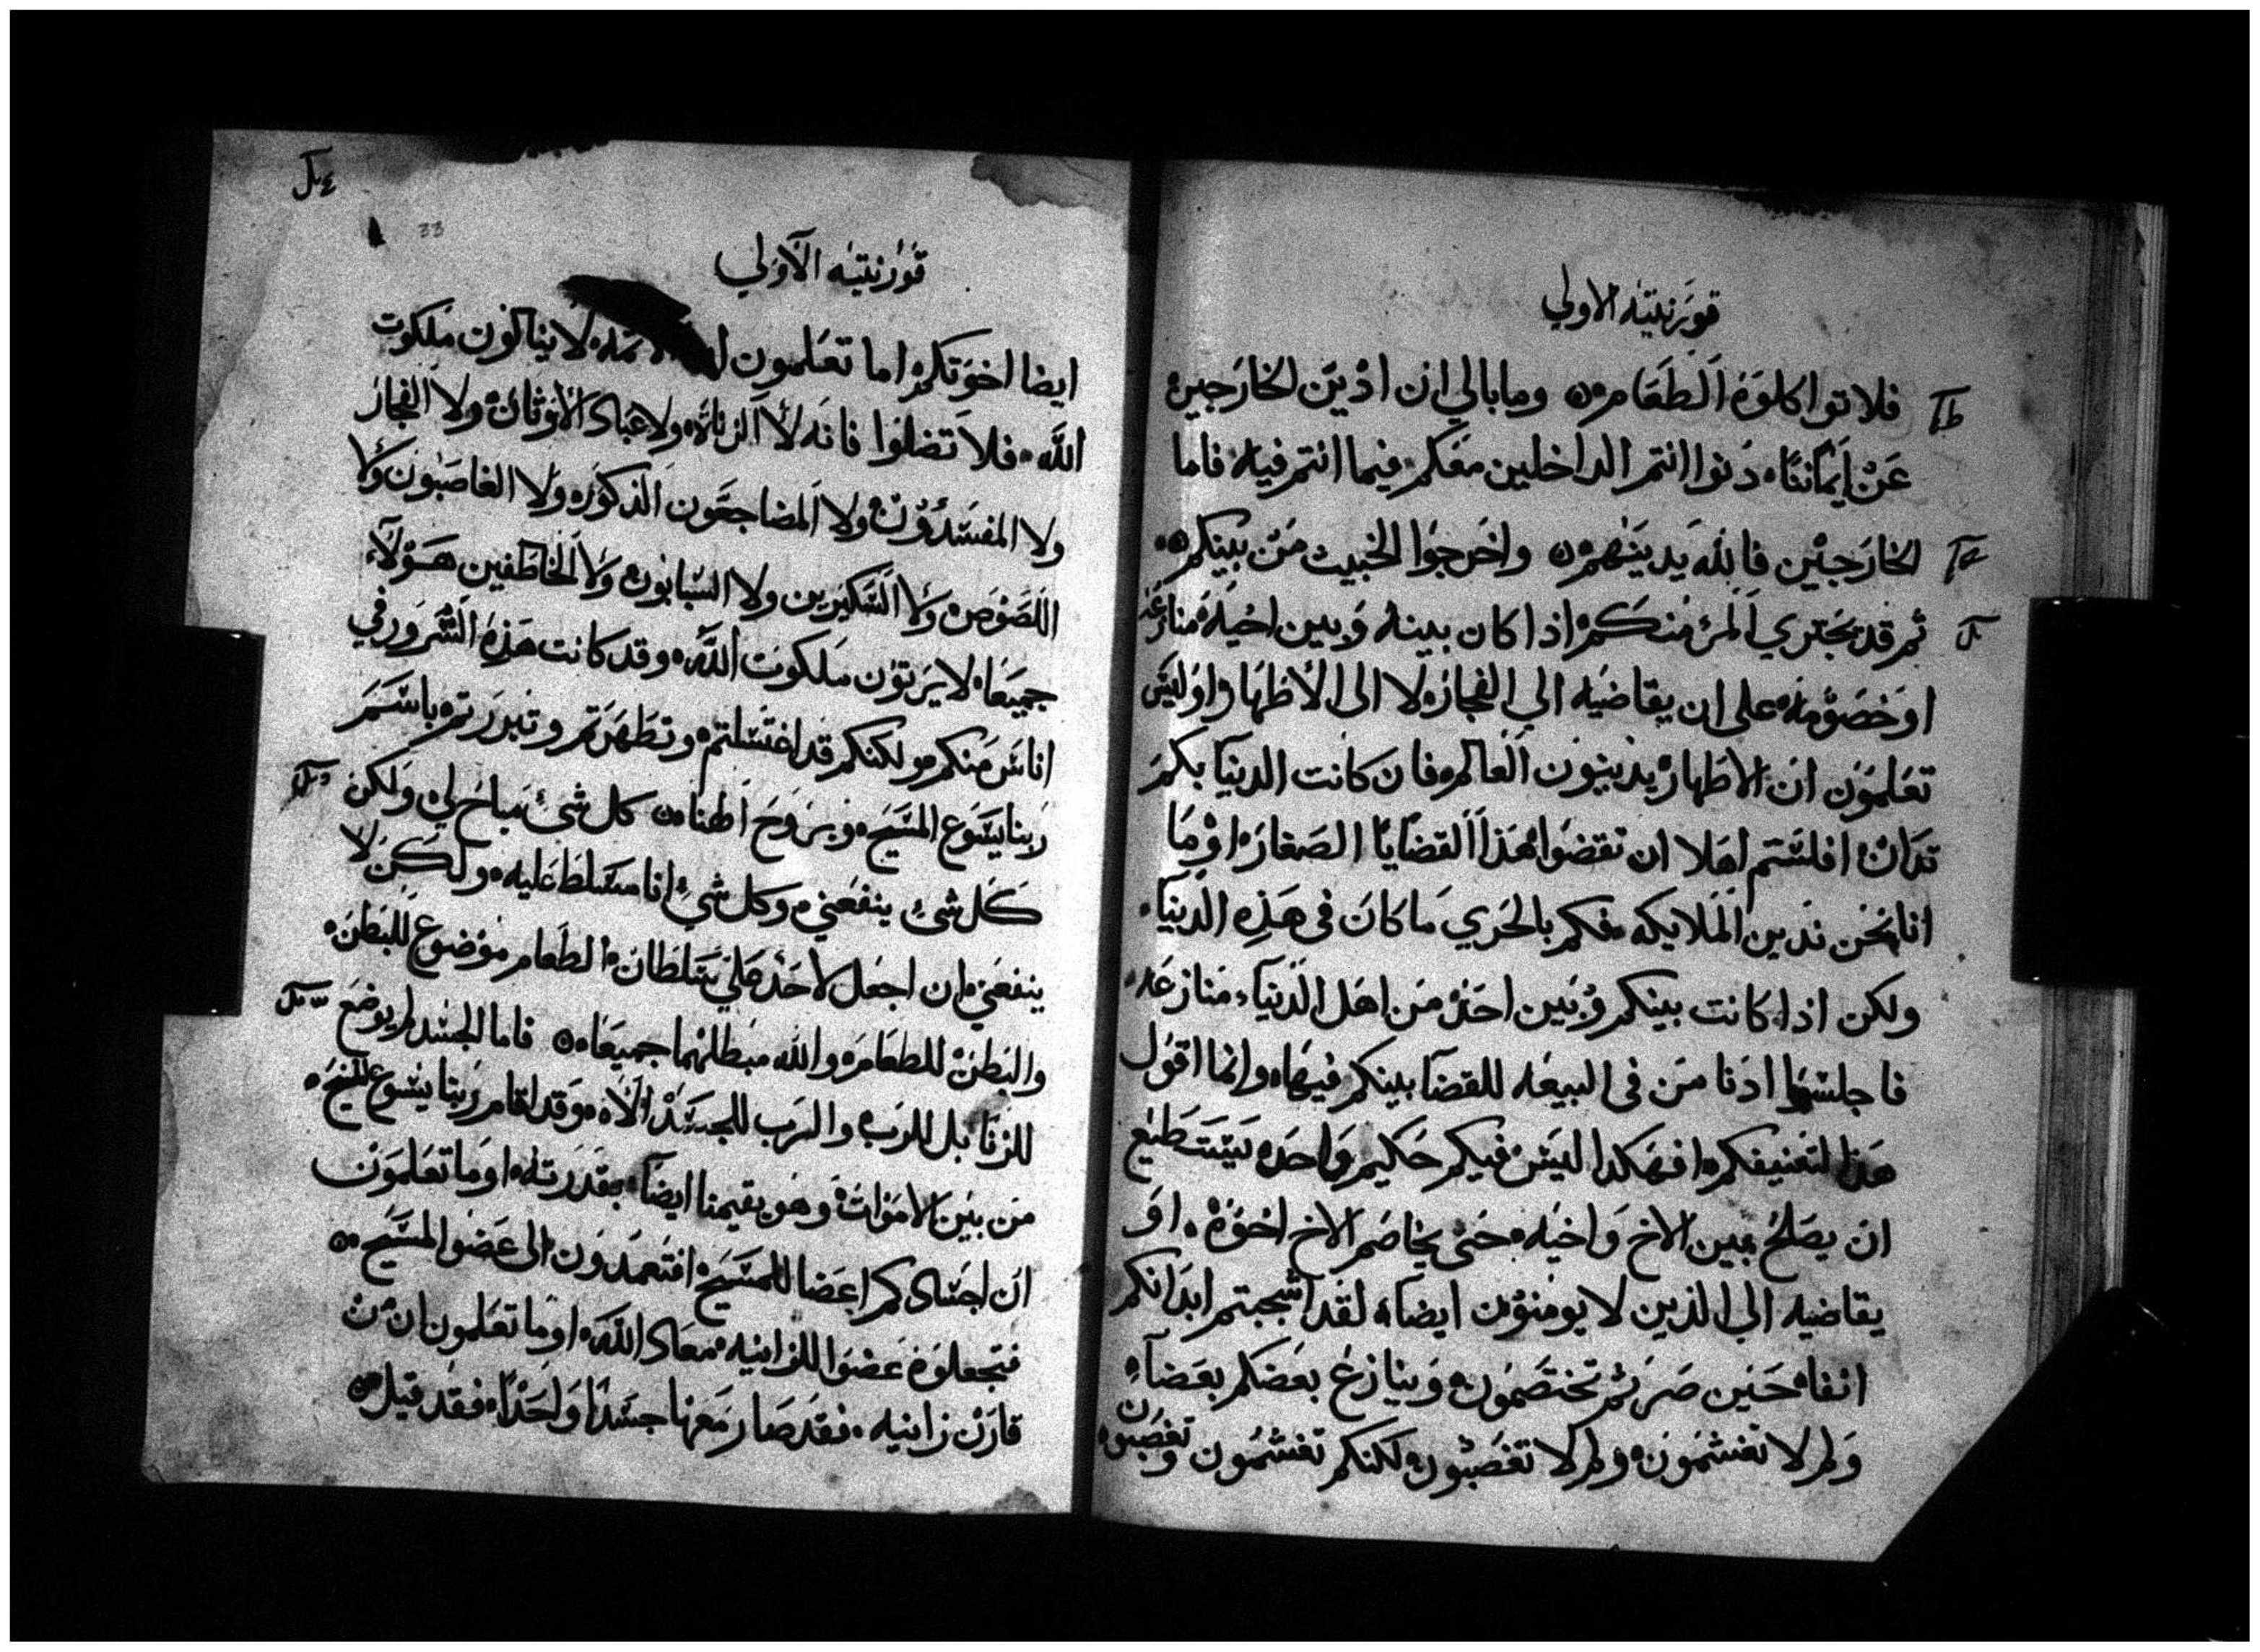 قورنتيه الاولي
فلا تواكلوه الطعام ٥ وما بالي ان ادين الخارجين
عن ايماننا، دنوا انتم الداخلين معكم فيما انتم فيه فاما
الخارجين فالله يدينهم ٥ واخرجوا الخبيث من بينكم ٥
ثم قد يجتري المرء منكم اذا كان بينه وبين اخيه منازعه
او خصومه على ان يقاضيه الي الفجاره لا الى الاطهار اوليس
تعلمون ان الاطهار يدينون العالم فان كانت الدنيا بكم
تدان افلستم اهلا ان تقضوا هذا القضايا الصغاره اوما
انا نحن ندين الملايكه فكم بالحري ما كان في هذه الدنيا،
ولكن اذا كانت بينكم وبين احد من اهل الدنيا، منازعه
فاجلسوا ادنا من في البيعه للقضا بينكم فيها وانما اقول
هذا لتعنيفكم افهكدا ليس فيكم حكيم واحده يستطيع
ان يصلح بين الاخ واخيه حتى يخاصم الاخ اخوه، او
يقاضيه الي الذين لا يومنون ايضا لقد اشجبتم ابدانكم
انفا حين صرتم تختصمون وينازع بعضكم بعضاً
ولم لا تغشمون ولم لا تغصبون لكنكم تغشمون وتغصبون
33
قورنتيه الاولي
ايضا اخوتكم اما تعلمون لا ينالون ملكوت
الله فلا تضلوا فانه لا الزناه ولا عباد الاوثان ولا الفجار
ولا المفسدون ولا المضاجعون الذكوره ولا الغاصبون ولا
اللصوص ولا السكيرين ولا السبابون ولا الخاطفين هولاء
جميعا لا يرتون ملكوت الله وقد كانت هذه الشرور في
اناس منكم ولكنكم قد اغتسلتم وتطهرتم وتبررتم باسم
ربنا يسوع المسيح وبروح الهنا ٥ كل شئ مباح لي ولكن
كل شئ ينفعني وكل شئ انا مسلط عليه ولكن لا
ينفعني ان اجعل لاحد علي سلطان الطعام موضوع للبطن
والبطن للطعام والله مبطلهما جميعا ٥ فاما الجسد لم يوضع
للزنا بل للرب والرب للجسد الاه وقد اقام ربنا يسوع المسيح
من بين الاموات وهو يقيمنا ايضا بقدرته اوما تعلمون
ان اجسادكم اعضا للمسيح افتعمدون الى عضو المسيح ٥
فتجعلوه عضوا للزانيه معاد الله اوما تعلمون ان من
قارن زانيه، فقد صار معها جسدا واحدا فقد قيل ٥